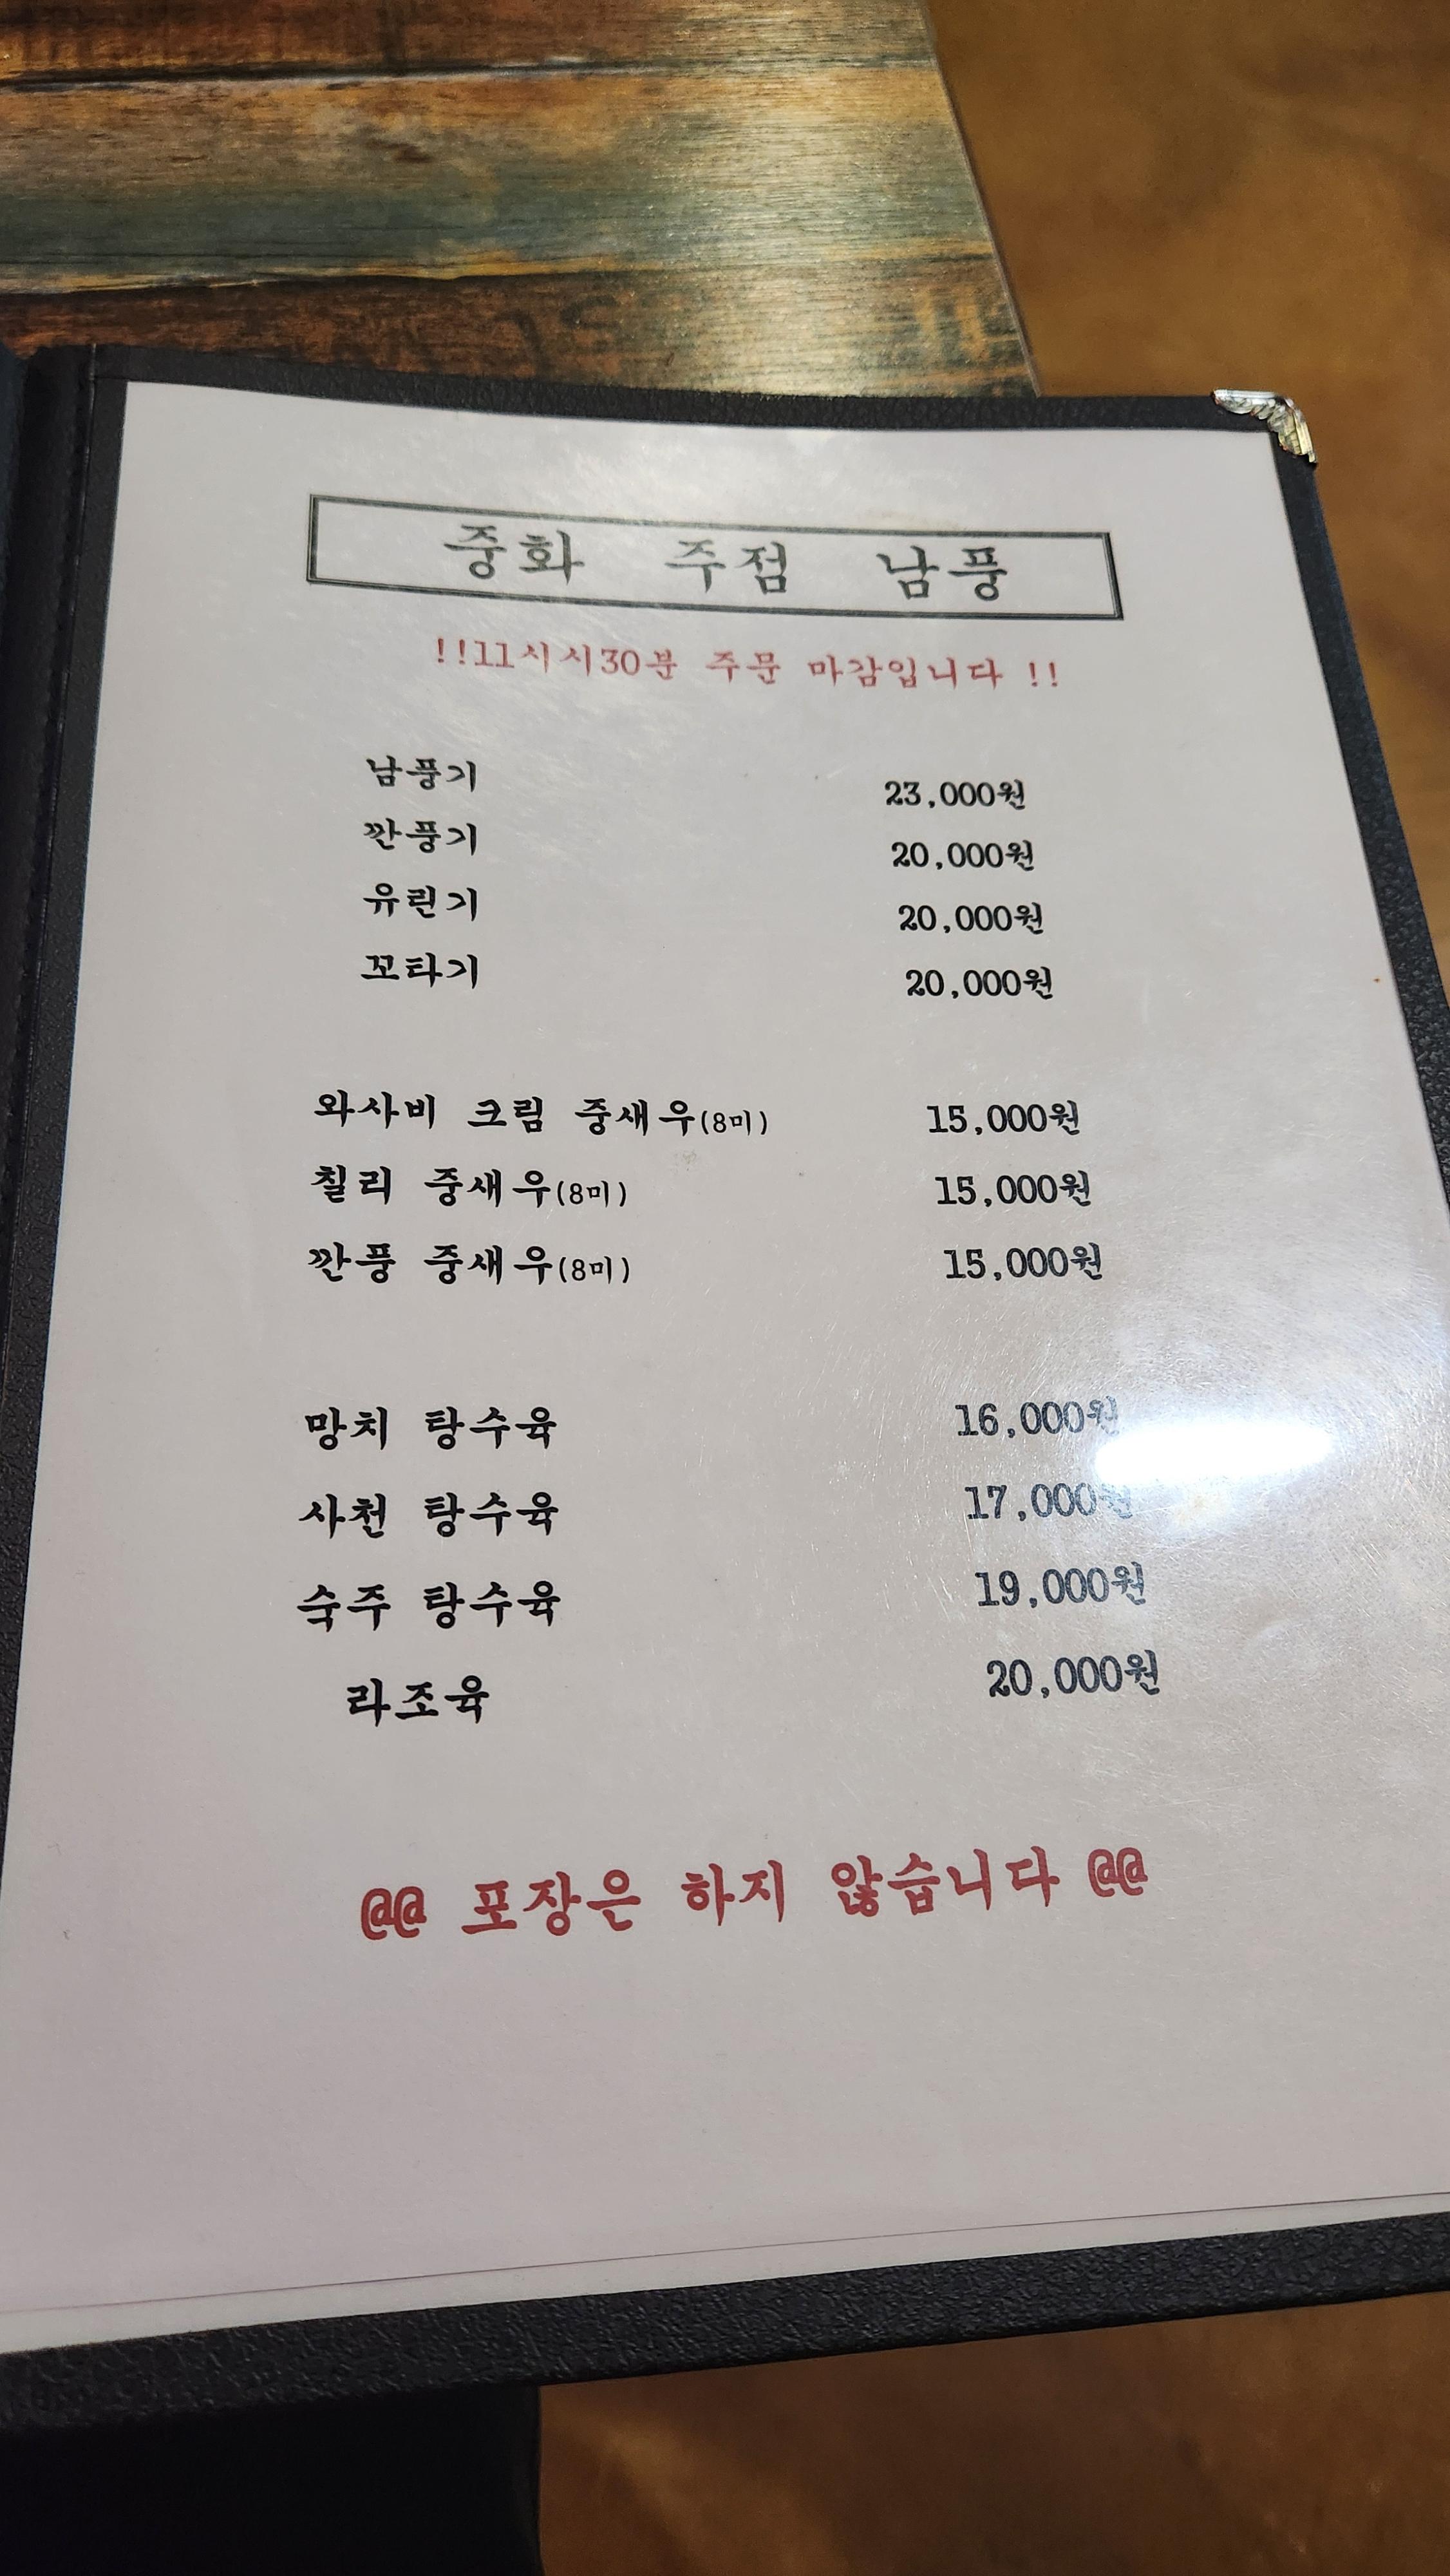 중화 주점 남풍
!!11시시30분 주문 마감입니다 !!
남풍기 23,000원
깐풍기 20,000원
유린기 20,000원
꼬타기 20,000원
와사비 크림 중새우(8미) 15,000원
칠리 중새우(8미) 15,000원
깐풍 중새우(8미) 15,000원
망치 탕수육 16,000원
사천 탕수육 17,000원
숙주 탕수육 19,000원
라조육 20,000원
@@ 포장은 하지 않습니다 @@